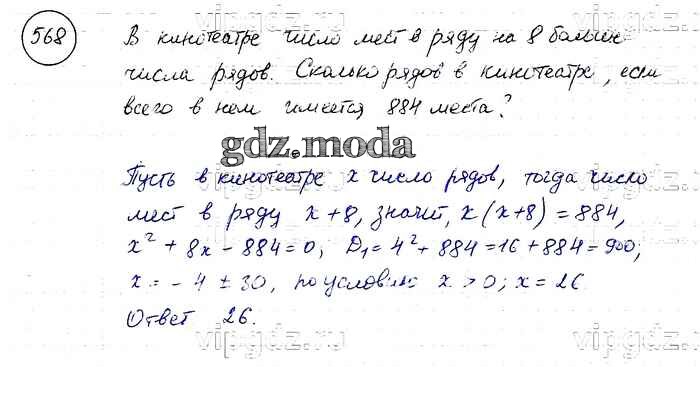 568
В кинотеатре число мест в ряду на 8 больше
числа рядов. Сколько рядов в кинотеатре, если
всего в нем имеется 884 места?
gdz.moda
Пусть в кинотеатре x число рядов, тогда число
мест в ряду x+8, значит, x(x+8)=884,
x² + 8x - 884=0, D₁=4²+884=16+884=900;
x = -4 ± 30, по условию x > 0; x = 26.
Ответ 26.
vipgdz.ru
vipgdz.ru
vipgdz.ru
vipgdz.ru